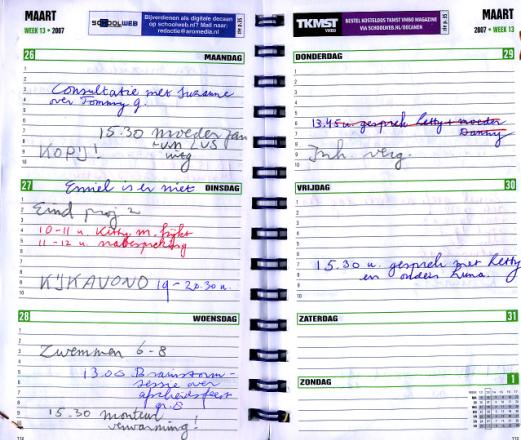 MAART
WEEK 13 • 2007
SCHOOLWEB
Bijverdienen als digitale decaan
op schoolweb.nl? Mail naar:
redactie@aromedia.nl
26 MAANDAG
1
2
3 Consultatie met Suzanne
4 over Tommy G.
5
6
7 15.30 moeder
8
9 KOPIJ!
10
27 Emiel is er niet DINSDAG
1
2 Eind proj 2
3
4 10-11 u. Ketty m.
5 11-12 u. nabespreking
6
7
8
9 KIJKAVOND 19-20.30 u.
10
28 WOENSDAG
1
2
3 Zwemmen 6-8
4
5 13.00 Brainstorm-
6 sessie over
7 afscheidsfeest
8 gr. 8
9 15.30 monteur
10 verwarming!
114
TKMST
VMBO
BESTEL KOSTELOOS TKMST VMBO MAGAZINE
VIA SCHOOLWEB.NL/DECANEN
MAART
2007 • WEEK 13
DONDERDAG 29
1
2
3
4
5
6 13.45 u. gesprek Ketty + moeder
7 Danny
8
9 Inh. verg.
10
VRIJDAG 30
1
2
3
4
5
6
7 15.30 u. gesprek met Ketty
8 en ouders Luna.
9
10
ZATERDAG 31
ZONDAG 1
115